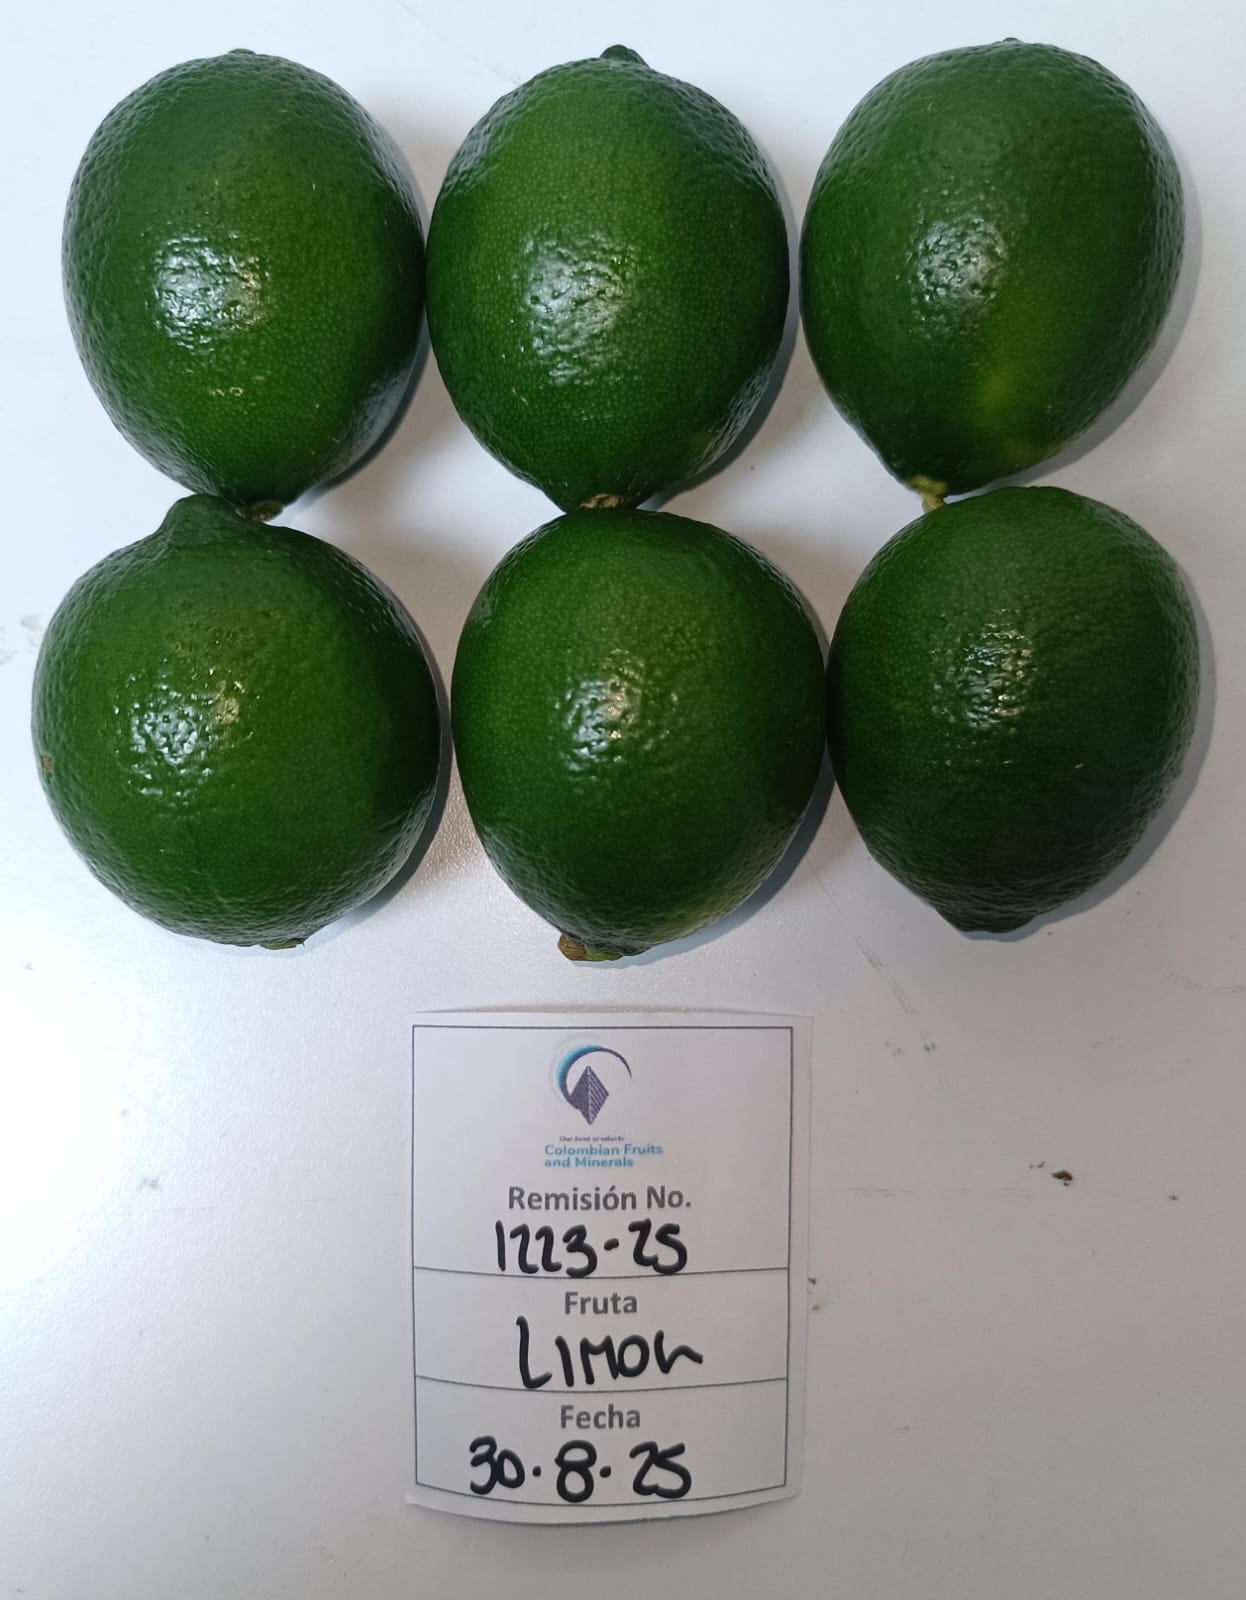 Our land products
Colombian Fruits
and Minerals
Remisión No.
1223-25
Fruta
LIMON
Fecha
30.8.25